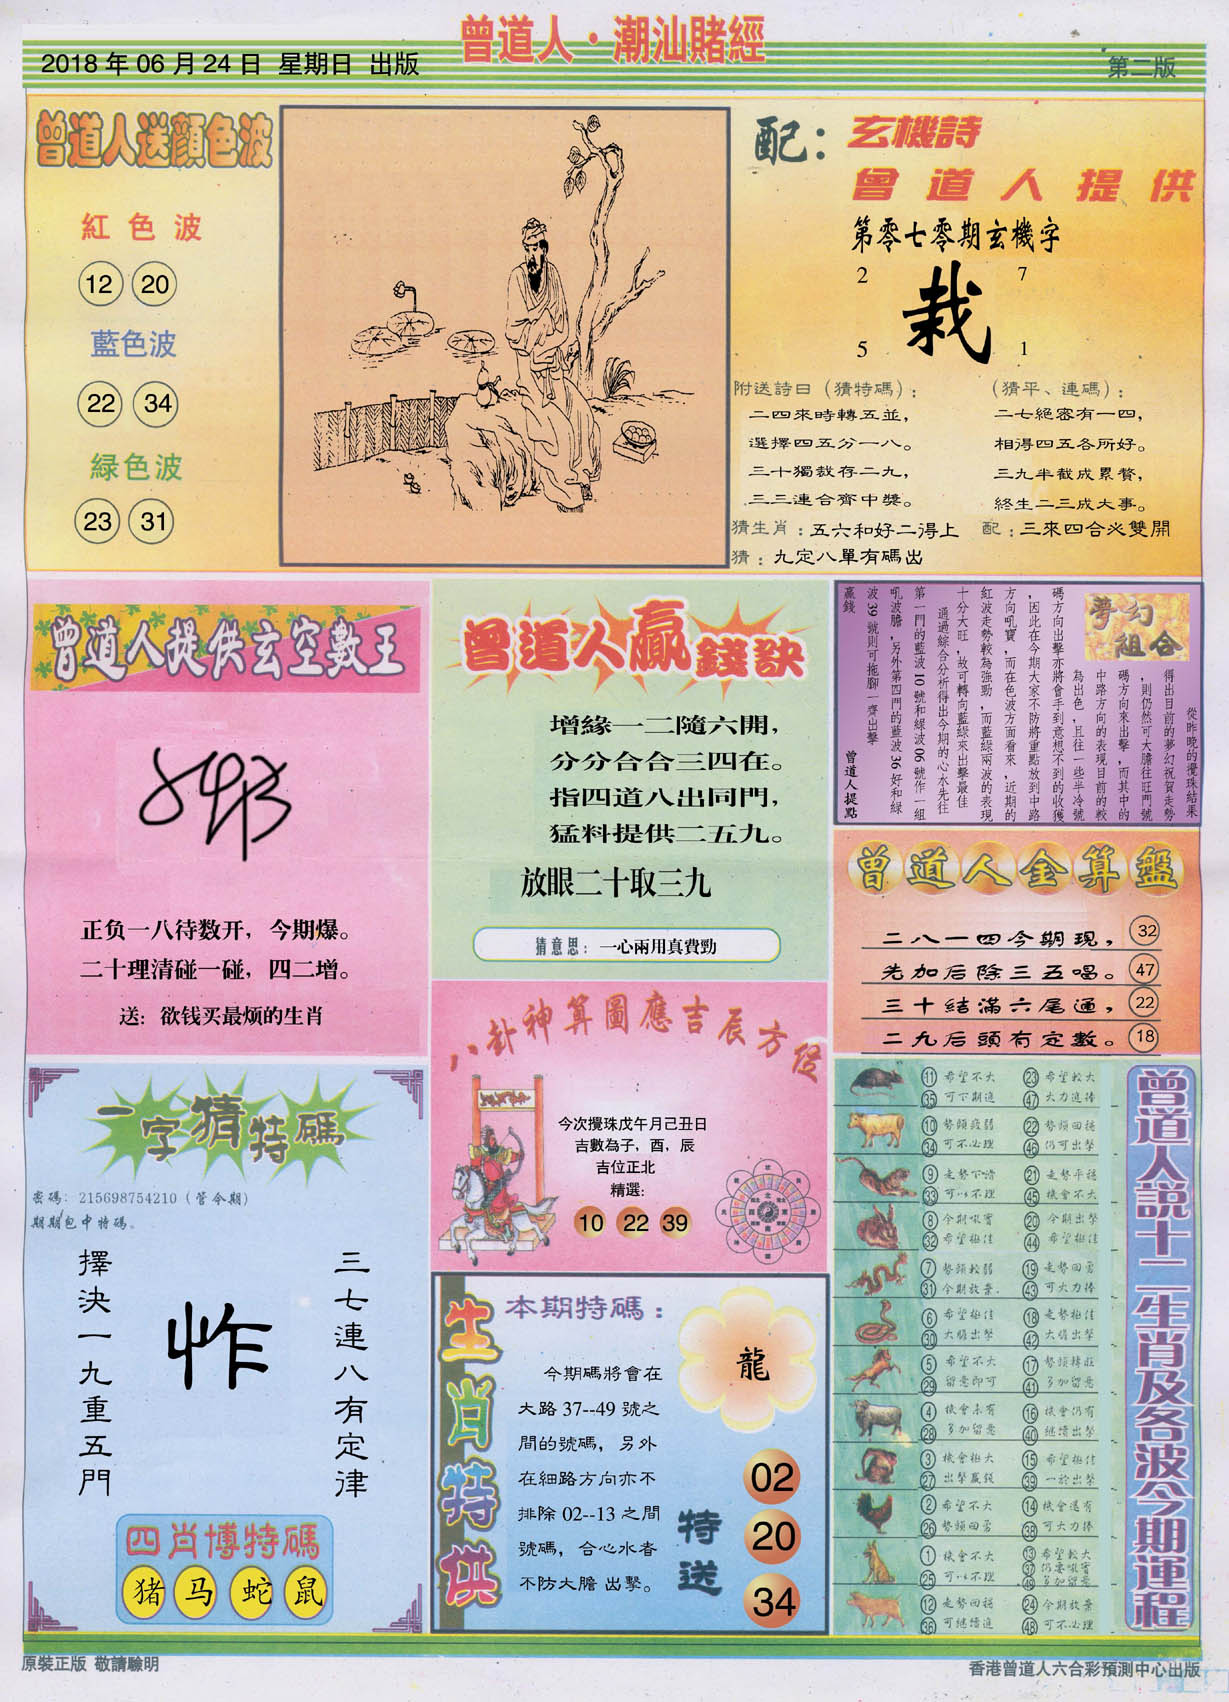 曾道人·潮汕賭經
2018 年 06 月 24 日 星期日 出版
第二版
曾道人送顔色波
紅色波
12 20
藍色波
22 34
緑色波
23 31
配：玄機詩
曾道人提供
第零七零期玄機字
2 7
栽
5 1
附送詩曰（猜特碼）：
二四來時轉五並，
選擇四五分一八。
三十獨裁存二九，
三三連合齊中獎。
（猜平、連碼）：
二七絕密有一四，
相得四五各所好。
三九半截成累贅，
終生二三成大事。
猜生肖：五六和好二得上
配：三來四合必雙開
猜：九定八單有碼出
曾道人提供玄空數王
正负一八待数开，今期爆。
二十理清碰一碰，四二增。
送：欲钱买最烦的生肖
曾道人贏錢訣
增緣一二隨六開，
分分合合三四在。
指四道八出同門，
猛料提供二五九。
放眼二十取三九
猜意思：一心兩用真費勁
夢幻組合
從昨晚的攪珠結果
得出目前的夢幻祝賀走勢
，則仍然可大膽往旺門號
碼方向來出擊，而其中的
中路方向的表現目前的較
為出色，且往一些半冷號
碼方向出擊亦將會手到意想不到的收獲
，因此在今期大家不防將重點放到中路
方向吼寶，而在色波方面看來，近期的
紅波走勢較為強勁，而藍綠兩波的表現
十分大旺，故可轉向藍綠來出擊最佳
通過綜合分析得出今期的心水先往
第一門的藍波 10 號和綠波 06 號作一組
吼波膽，另外第四門的藍波 36 好和綠
波 39 號則可拖腳一齊出擊
贏錢
曾道人提點
曾道人金算盤
二八一四今期現， 32
先加后除三五唱。 47
三十結滿六尾通， 22
二九后頭有定數。 18
八卦神算圖應吉辰方位
今次攪珠戊午月己丑日
吉數為子，酉，辰
吉位正北
精選：
10 22 39
一字猜特碼
密碼：215698754210（管令期）
期期包中特碼。
三七連八有定律
怍
擇決一九重五門
四肖博特碼
猪 马 蛇 鼠
生肖特供
本期特碼：
龍
今期碼將會在
大路 37--49 號之
間的號碼，另外
在細路方向亦不
排除 02--13 之間
號碼，合心水者
不防大膽 出擊。
特送
02
20
34
曾道人説十二生肖及各波今期運程
11 希望不大 23 希望較大
35 可下期進 47 大力進捧
10 勢頭疲弱 22 勢頭回穩
34 可不必理 46 仍可出擊
9 走勢下滑 21 走勢平穩
33 可以不理 45 機會不大
8 今期吼寶 20 今期出擊
32 希望極佳 44 希望極佳
7 勢頭較弱 19 走勢回勇
31 今期放棄 43 可大力捧
6 希望極佳 18 走勢極佳
30 大膽出擊 42 大膽出擊
5 希望不大 17 勢頭轉旺
29 留意即可 41 多加留意
4 機會未有 16 機會仍有
28 多加留意 40 繼續出擊
3 機會極大 15 希望極佳
27 出擊贏錢 39 一於出擊
2 希望不大 14 機會還有
26 勢頭回勇 38 可大力捧
1 機會不大 13 希望較大
25 可以不理 37 仍要吼實
49 多加留意
12 走勢回穩 24 今期放棄
36 可繼續進 48 可不必理
原裝正版 敬請驗明
香港曾道人六合彩預測中心出版